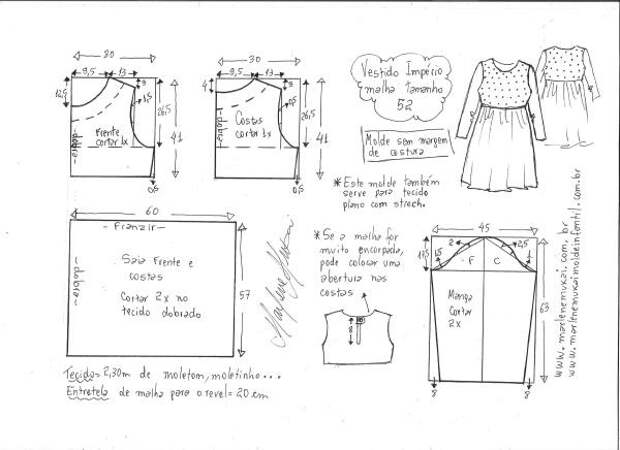 30
9,5
13
3
12,5
1,5
26,5
41
Frente
cortar 1x
-dobra-
0,5
30
9,5
13
4
3
1,5
26,5
41
Costas
cortar 1x
-dobra-
0,5
Vestido Império
malha tamanho
52
Molde sem margem
de costura
*Este molde também
serve para tecido
plano com strech.
60
- Franzir -
-dobra-
Saia Frente e
costas
Cortar 2x no
tecido dobrado
57
Marlene Mukai
*Se a malha for
muito encorpada,
pode colocar uma
abertura nas
costas
8
45
2
2,5
1,5
1
F
C
13,5
Manga
Cortar
2x
63
8
8
www.marlenemukai.com.br
www.marlenemukaimoldeinfantil.com.br
Tecido= 2,30m de moletom, moletinho...
Entretela de malha para o revel= 20 cm